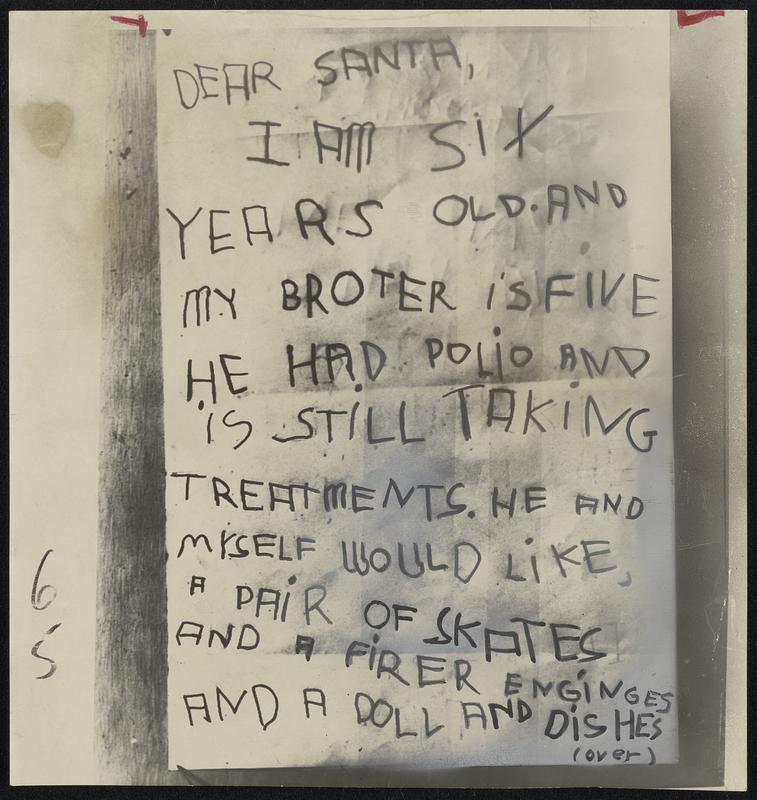 DEAR SANTA,
I AM SiX
YEARS OLD. AND
MY BROTER iS FIVE
HE HAD POLiO AND
iS STiLL TAKiNG
TREATMENTS. HE AND
MYSELF WOULD LiKE,
A PAiR OF SKATES
AND A FiRER ENGiNGES
AND A DOLL AND DiSHES
(over)
6
5